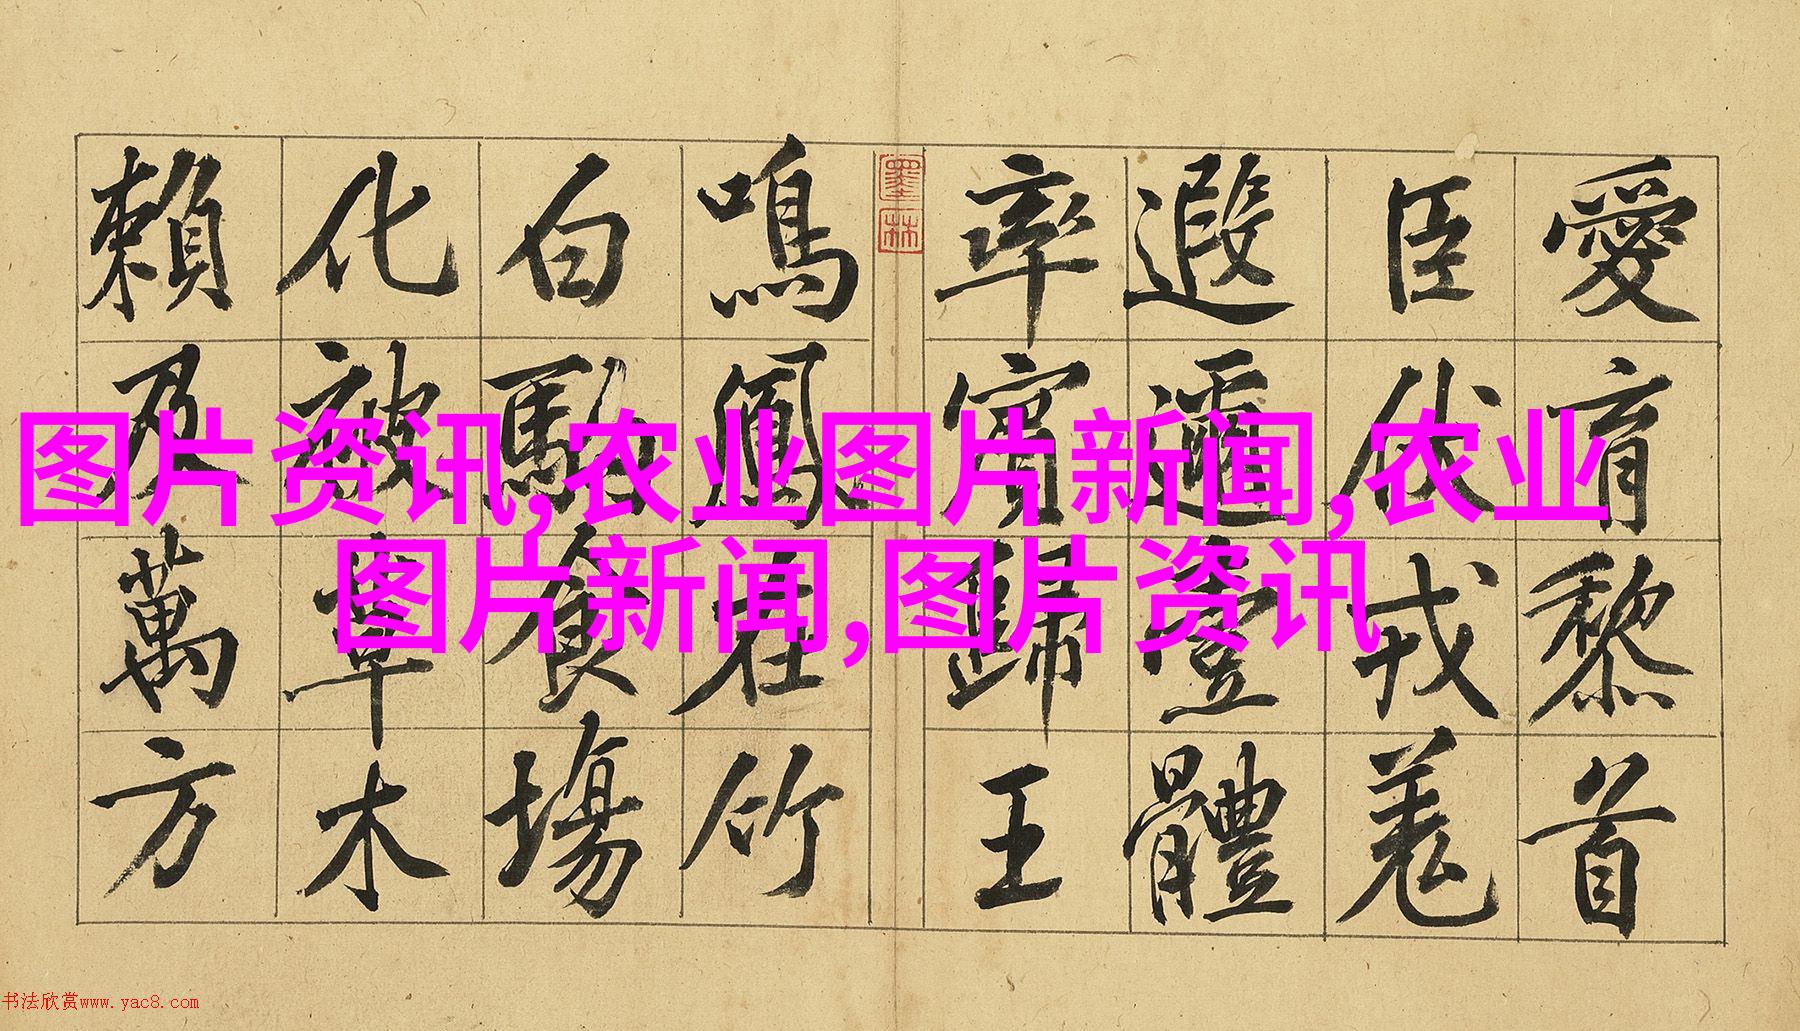 愛育黎首
臣伏戎羌
遐邇壹體
率賓歸王
墨林
鳴鳳在竹
白駒食場
化被草木
賴及萬方
图片资讯,农业图片新闻,农业
图片新闻,图片资讯
书法欣赏www.yac8.com